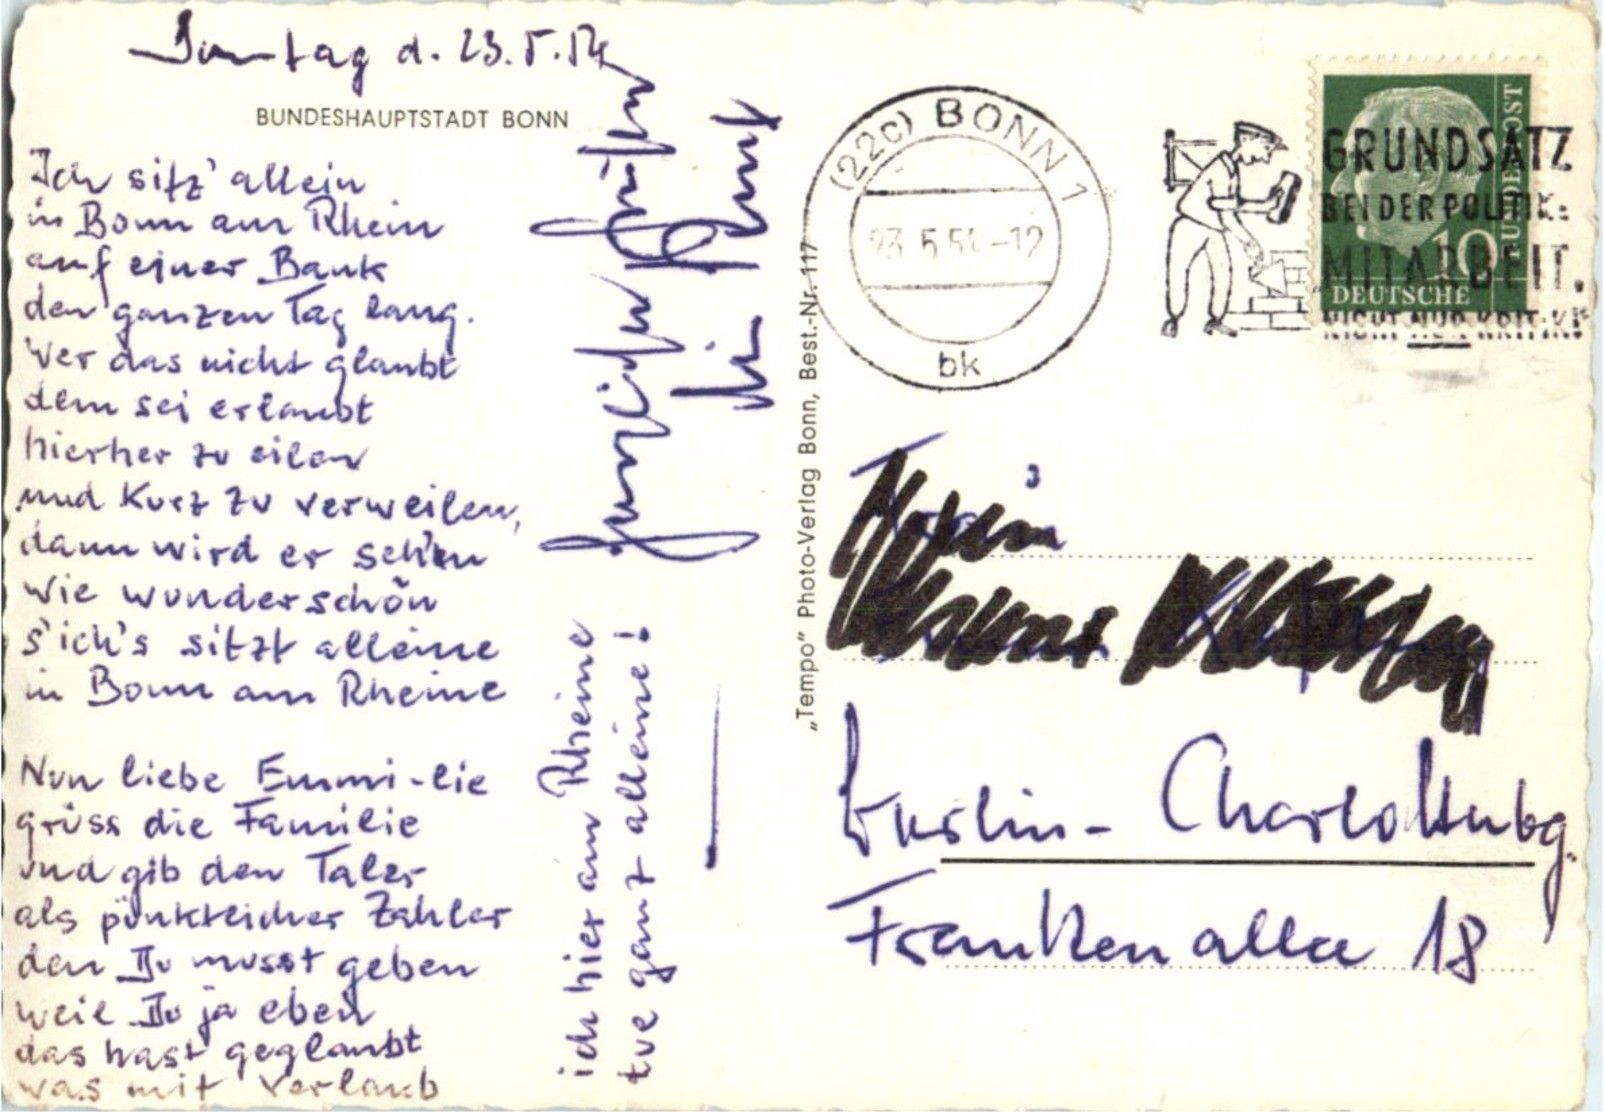 Sonntag d. 23.5.54
BUNDESHAUPTSTADT BONN
Ich sitz' allein
in Bonn am Rhein
auf einer Bank
den ganzen Tag lang.
Wer das nicht glaubt
dem sei erlaubt
hierher zu eilen
und kurz zu verweilen,
dann wird er seh'n
wie wunderschön
s'ich's sitzt alleine
in Bonn am Rheine
Nun liebe Emmi-lie
grüss die Familie
und gib den Taler
als pünktlicher Zahler
den Du musst geben
weil Du ja eben
das hast geglaubt
was mit Verlaub
ich hier am Rheine
tue ganz alleine!
Herzlichen
Dein
„Tempo" Photo-Verlag Bonn, Best.-Nr. 117
(22c) BONN 1
23.5.54-12
bk
GRUNDSATZ
BEI DER POLITIK:
MITARBEIT.
NICHT NUR KRITIK!
10
DEUTSCHE
BUNDESPOST
Berlin-Charlottenbg.
Frankenallee 18